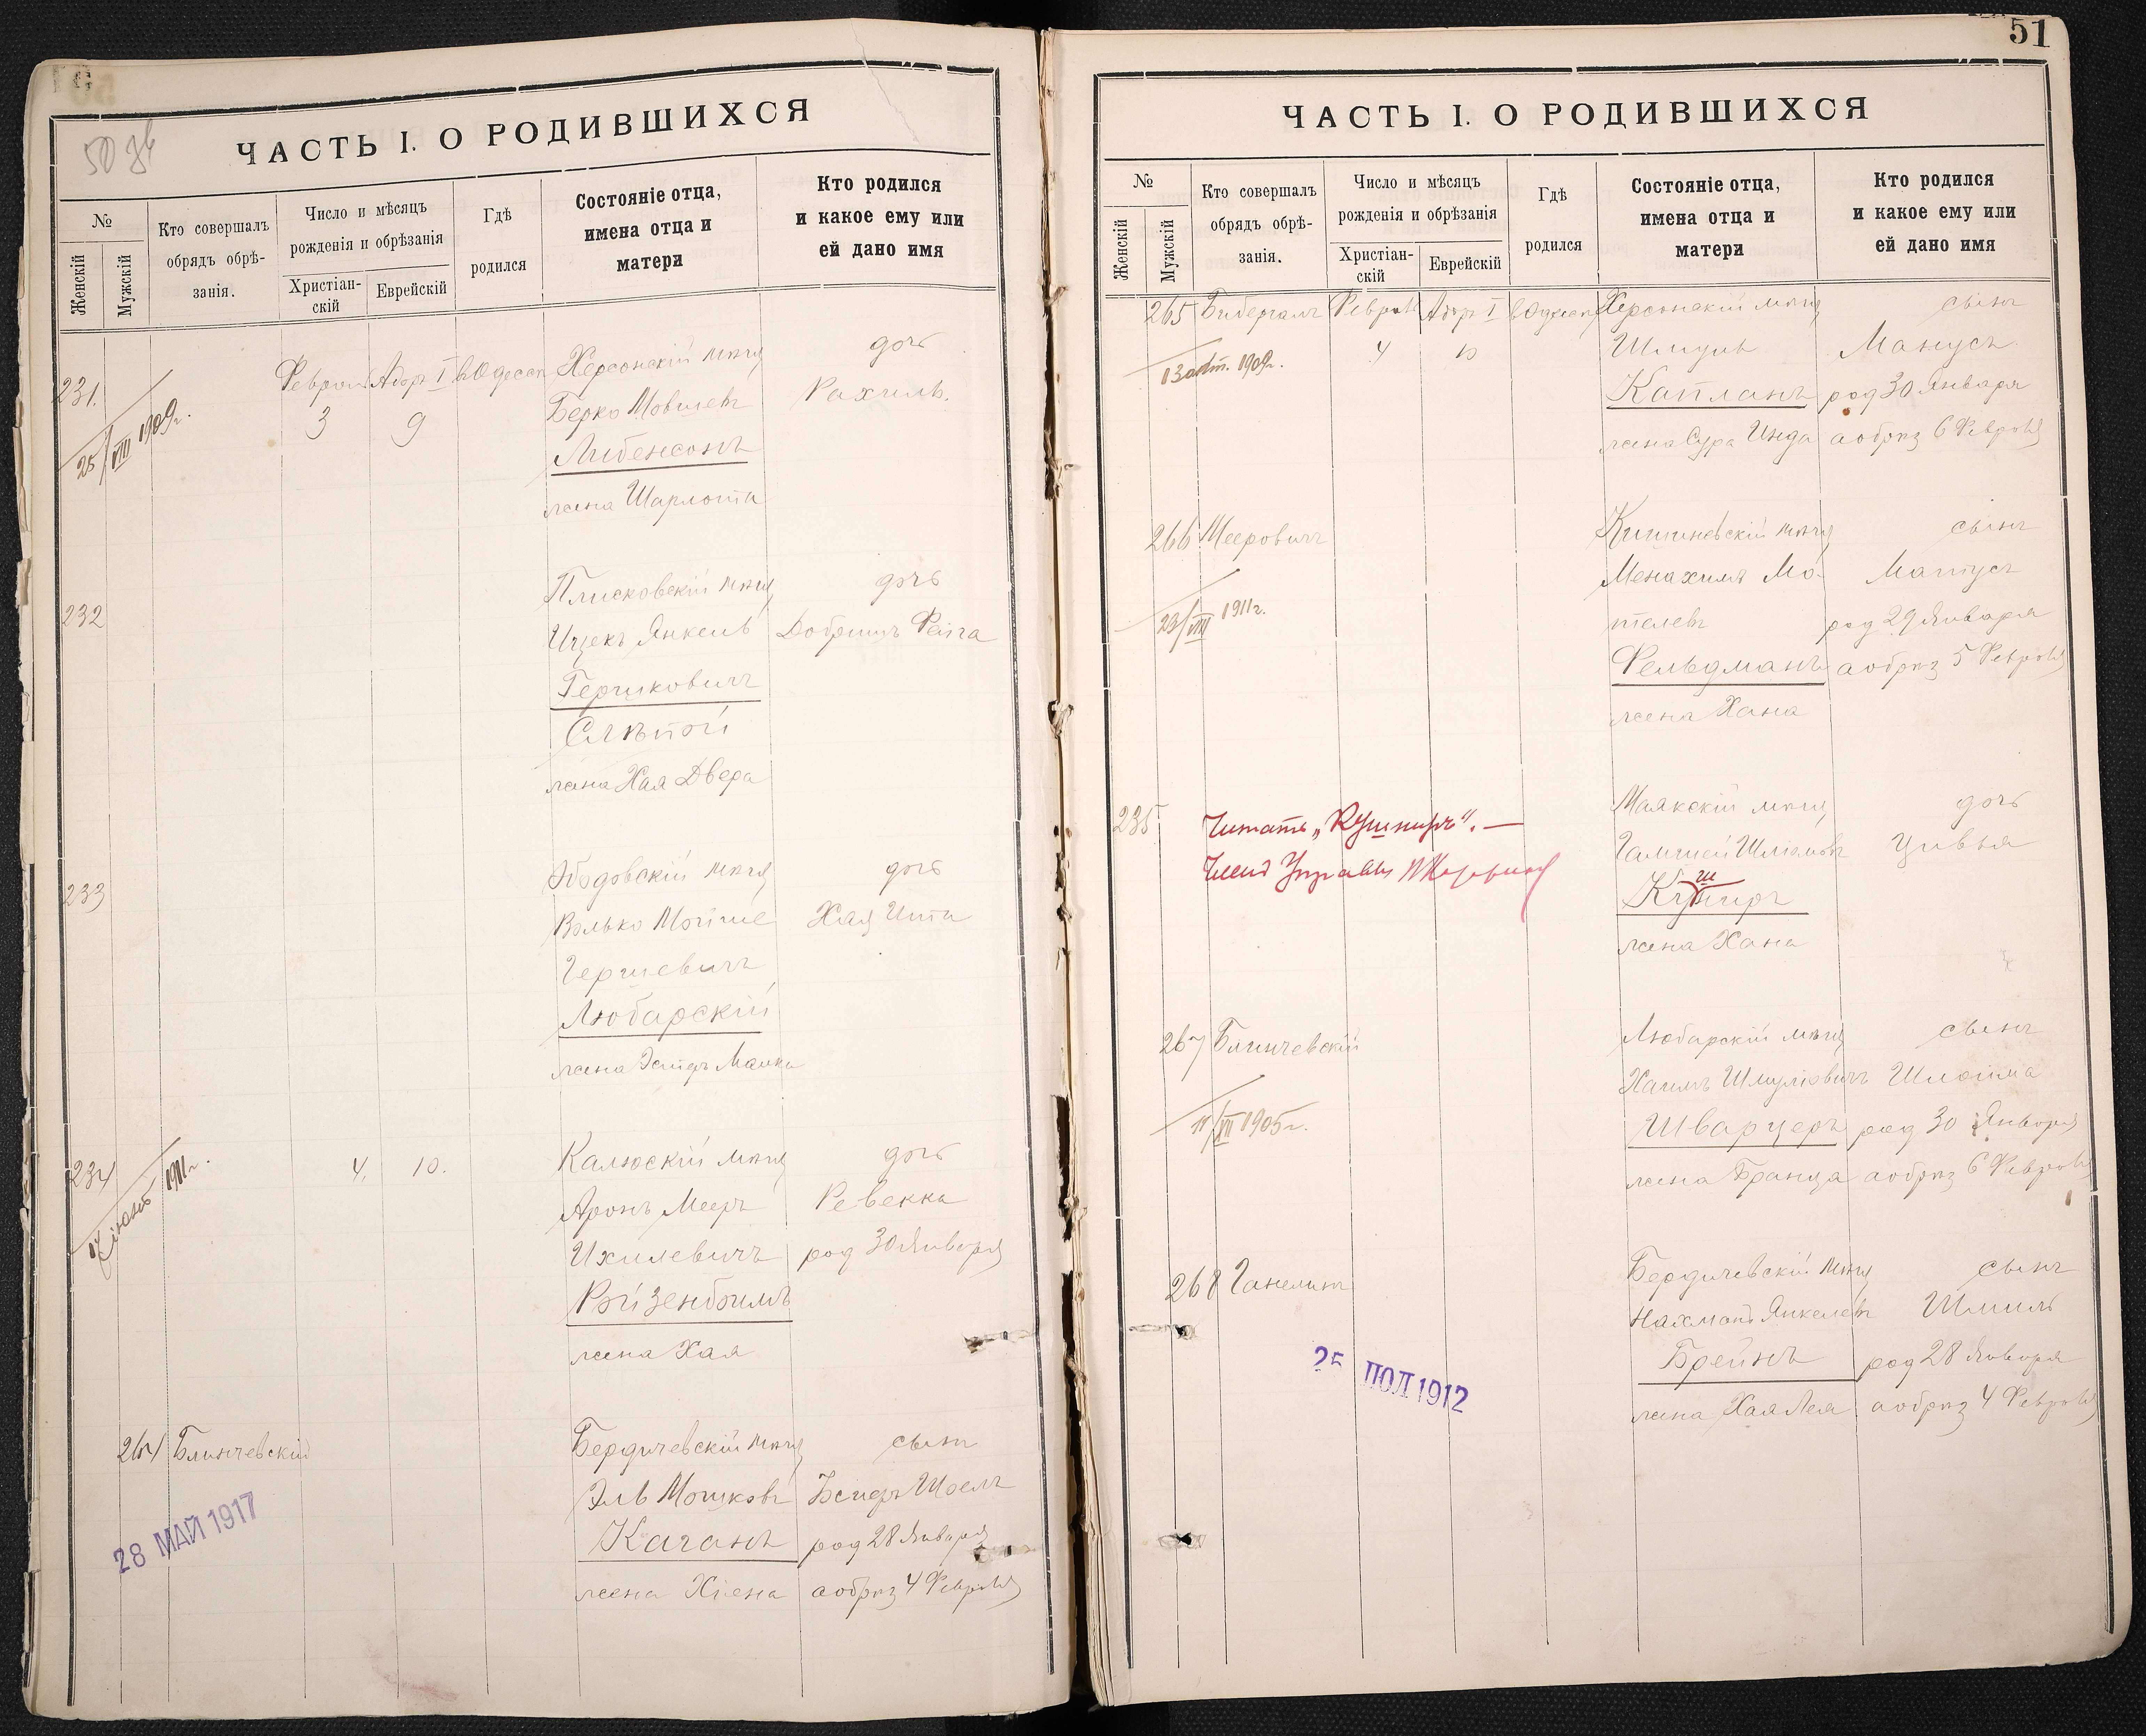 50 зв
ЧАСТЬ I. О РОДИВШИХСЯ
№
Женскій
Мужскій
Кто совершалъ
обрядъ обрѣ-
занія.
Число и мѣсяцъ
рожденія и обрѣзанія
Христіан-
скій
Еврейскій
Гдѣ
родился
Состояніе отца,
имена отца и
матери
Кто родился
и какое ему или
ей дано имя
231.
25/VIII 1909г.
Адаръ I
3
9
Херсонскій мѣщ
Берко Мовшевъ
Либенсонъ
жена Шарлота
дочь
Рахиль.
232
Плисковскій мѣщ
Ицекъ Янкель
Гершковичъ
Слѣпой
жена Хая Двера
дочь
Фейга
233
мѣщ
Волько
Гершевичъ
Любарскій
жена Эстеръ Малка
дочь
Хая Ита
234
1911г.
4.
10.
Калюскій мѣщ
Аронъ Мееръ
Ихилевичъ
Ройзенбоимъ
жена Хая
дочь
Ревекка
род 30 Января
264
Блинчевскій
28 МАЙ 1917
Бердичевскій мѣщ
Эль Мошковъ
Каганъ
жена Хіена
сынъ
род 28 Января
а обрѣз 4 Февраля
51
ЧАСТЬ I. О РОДИВШИХСЯ
№
Женскій
Мужскій
Кто совершалъ
обрядъ обрѣ-
занія.
Число и мѣсяцъ
рожденія и обрѣзанія
Христіан-
скій
Еврейскій
Гдѣ
родился
Состояніе отца,
имена отца и
матери
Кто родился
и какое ему или
ей дано имя
265
Бибергалъ
Февраля
Адаръ I
в Одессѣ
13 авг. 1909г.
4
10
Херсонскій мѣщ
Шмуль
Капланъ
жена Сура Инда
сынъ
Манусъ
род 30 Января
а обрѣз 6 Февраля
266
Мееровичъ
23/VIII 1911г.
Кишиневскій мѣщ
Менахимъ Мо-
телевъ
Фельдманъ
жена Хана
сынъ
Матусъ
род 29 Января
а обрѣз 5 Февраля
235
Читать „Кушниръ“. —
Членъ Управы
Маякскій мѣщ
Куниръ
ш
жена Хана
дочь
Цивья
267
Блинчевскій
11/VII 1905г.
Любарскій мѣщ
Хаимъ Шмуліовичъ
Шварцеръ
жена Бранца
сынъ
Шлойма
род 30 Января
а обрѣз 6 Февраля
268
Ганелинъ
25 ІЮЛ 1912
Бердичевскій мѣщ
Нахманъ Янкелевъ
Брейнъ
жена Хая Лея
сынъ
Шмиль
род 28 Января
а обрѣз 4 Февраля